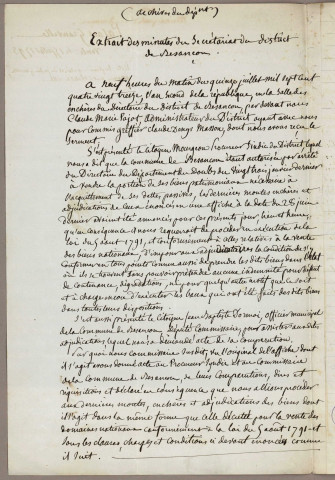 (archives du dépôt)
Extrait des minutes du Secrétariat du district
de Besançon
A neuf heures du matin du quinze juillet mil sept cent
quatre vingt treize, l'an second de la république, en la salle des
enchères du Directoire du District de Besançon, par devant nous
Claude Marie Pajot, administrateur du District ayant avec nous
pour commis greffier Claude Masson, dont nous avons recu le
serment.
S'est présenté le citoyen Procureur Sindic du District lequel
nous a dit que la commune de Besançon étant autorisée par arrêté
du Directoire du Département du Doubs du vingt trois janvier dernier
à vendre la portion de ses biens patrimoniaux nécessaire à
l'acquittement de ses dettes passives, les dernières montes enchères et
adjudications de deux en une affiche à la date du 28 juin
dernier avaient été annoncés pour ces présents jour lieu et heure,
qu'en conséquence il nous requerait de procéder en exécution de la
loi du 5 août 1791, et conformément à celles relatives à la vente
des biens nationaux, d'imposer aux adjudicataires la condition de s'y
conformer en tous points comme aussi de prendre les dits biens dans l'état
où ils se trouvent sans pouvoir prétendre aucune indemnité pour défaut
de contenance, dégradations, ni pour quelqu'autre motif que ce soit
et à charge même d'exécuter les baux qui ont été faits des dits biens
dans toutes leurs dispositions.
S'est aussi présenté le citoyen Jean Baptiste officier municipal
de la Commune de Besançon, Député Commissaire pour assister aux dites
adjudications lequel nous a demandé acte de la comparution.
Sur quoi nous commissaire susdit, vu l'original de l'affiche dont
il s'agit avons donné acte au Procureur Sindic et au commissaire
de la commune de Besançon, de leurs comparutions, dires et
réquisitions et déclaré en conséquence que nous allions procéder
aux dernières montes, enchères et adjudications des biens dont
il s'agit dans la même forme que celle décrétée pour la vente des
domaines nationaux conformément à la loi du 5 août 1791 et
sous les clauses charges et conditions ci devant énoncées comme
il suit.